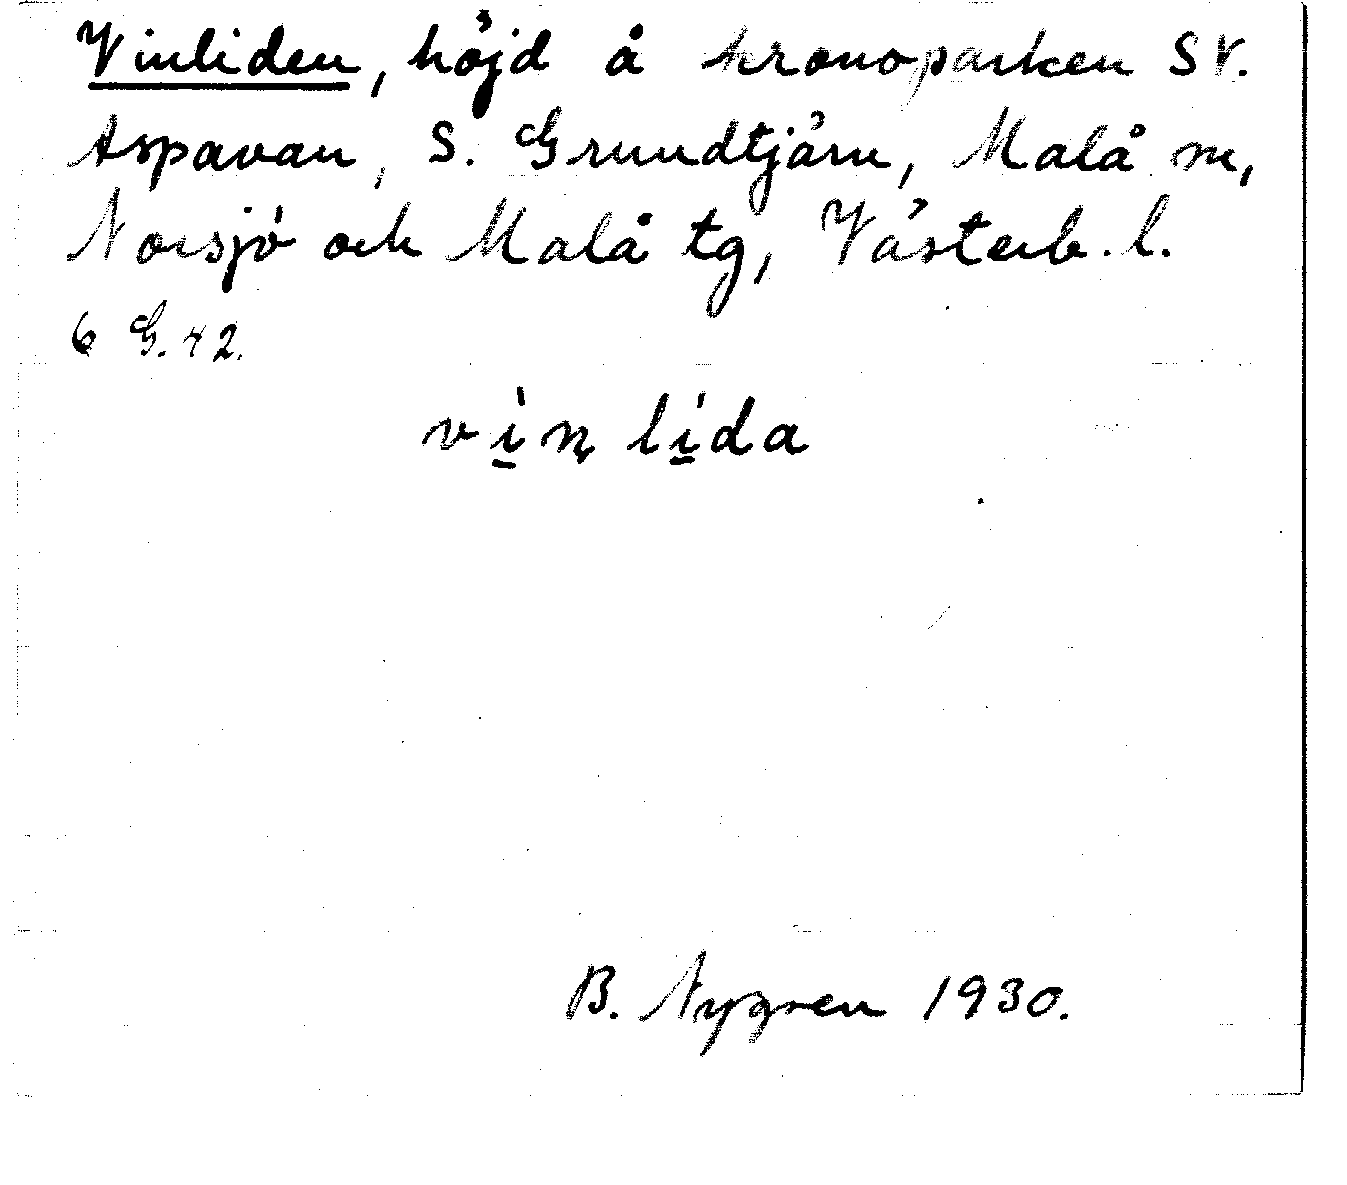 Vinliden, höjd å kronoparken SV.
Aspavan, S. Grundtjärn, Malå sn,
Norsjö och Malå tg, Västerb. l.
6 G. 42.
vi̱ṇ li̱da
B. Nygren 1930.